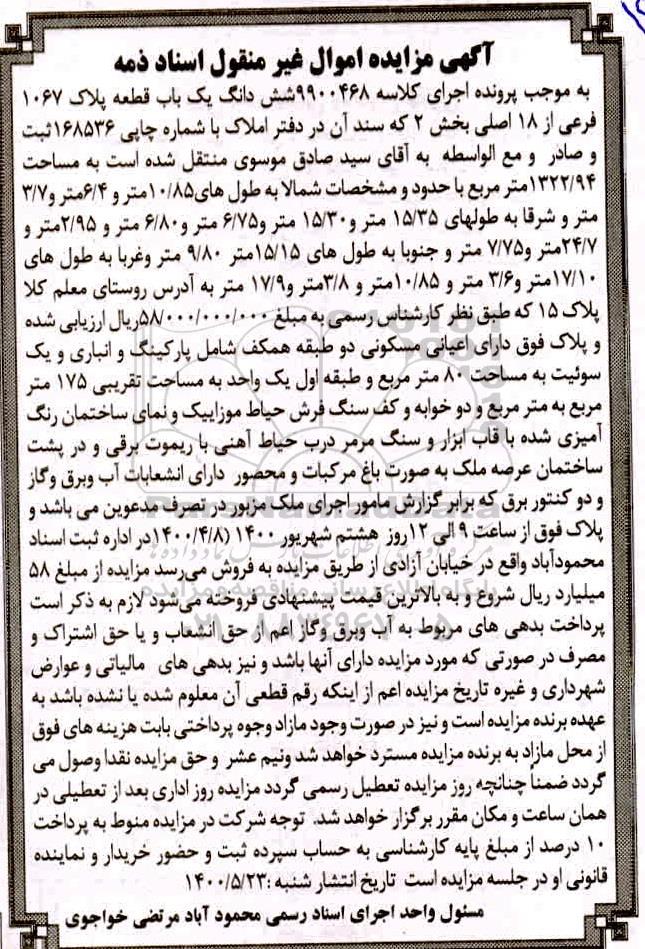 آگهی مزایده اموال غیر منقول اسناد ذمه
به موجب پرونده اجرای کلاسه ۹۹۰۰۴۶۸شش دانگ یک باب قطعه پلاک ۱۰۶۷
فرعی از ۱۸ اصلی بخش ۲ که سند آن در دفتر املاک با شماره چاپی ۱۶۸۵۳۶ثبت
و صادر و مع الواسطه به آقای سید صادق موسوی منتقل شده است به مساحت
۱۳۲۲/۹۴متر مربع با حدود و مشخصات شمالا به طول های۱۰/۸۵متر و ۶/۴متر و۳/۷
متر و شرقا به طولهای ۱۵/۳۵ متر و۱۵/۳۰ متر و۶/۷۵ متر و۶/۸۰ متر و ۲/۹۵متر و
۲۴/۷متر و۷/۷۵ متر و جنوبا به طول های ۱۵/۱۵متر ۹/۸۰ متر وغربا به طول های
۱۷/۱۰متر و۳/۶ متر و ۱۰/۸۵متر و ۳/۸متر و۱۷/۹ متر به آدرس روستای معلم کلا
پلاک ۱۵ که طبق نظر کارشناس رسمی به مبلغ ۵۸/۰۰۰/۰۰۰/۰۰۰ریال ارزیابی شده
و پلاک فوق دارای اعیانی مسکونی دو طبقه همکف شامل پارکینگ و انباری و یک
سوئیت به مساحت ۸۰ متر مربع و طبقه اول یک واحد به مساحت تقریبی ۱۷۵ متر
مربع به متر مربع و دو خوابه و کف سنگ فرش حیاط موزاییک و نمای ساختمان رنگ
آمیزی شده با قاب ابزار و سنگ مرمر درب حیاط آهنی با ریموت برقی و در پشت
ساختمان عرصه ملک به صورت باغ مرکبات و محصور دارای انشعابات آب وبرق وگاز
و دو کنتور برق که برابر گزارش مامور اجرای ملک مزبور در تصرف مدعوین می باشد و
پلاک فوق از ساعت ۹ الی ۱۲روز هشتم شهریور ۱۴۰۰ (۱۴۰۰/۴/۸در اداره ثبت اسناد
محمودآباد واقع در خیابان آزادی از طریق مزایده به فروش می‌رسد مزایده از مبلغ ۵۸
میلیارد ریال شروع و به بالاترین قیمت پیشنهادی فروخته می‌شود لازم به ذکر است
پرداخت بدهی های مربوط به آب وبرق وگاز اعم از حق انشعاب و یا حق اشتراک و
مصرف در صورتی که مورد مزایده دارای آنها باشد و نیز بدهی های مالیاتی و عوارض
شهرداری و غیره تاریخ مزایده اعم از اینکه رقم قطعی آن معلوم شده یا نشده باشد به
عهده برنده مزایده است و نیز در صورت وجود مازاد وجوه پرداختی بابت هزینه های فوق
از محل مازاد به برنده مزایده مسترد خواهد شد ونیم عشر و حق مزایده نقدا وصول می
گردد ضمناً چنانچه روز مزایده تعطیل رسمی گردد مزایده روز اداری بعد از تعطیلی در
همان ساعت و مکان مقرر برگزار خواهد شد. توجه شرکت در مزایده منوط به پرداخت
۱۰ درصد از مبلغ پایه کارشناسی به حساب سپرده ثبت و حضور خریدار و نماینده
قانونی او در جلسه مزایده است تاریخ انتشار شنبه :۱۴۰۰/۵/۲۳
مسئول واحد اجرای اسناد رسمی محمود آباد مرتضی خواجوی